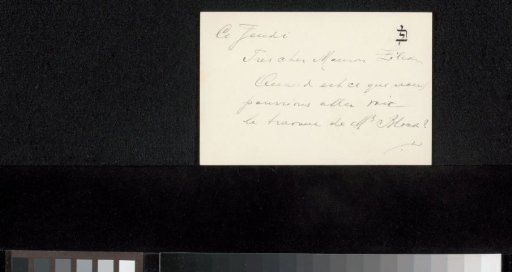 Ce Jeudi
Très cher Maison Zilcken
Quand est ce que nous
pourrions aller voir
le travail de Mr